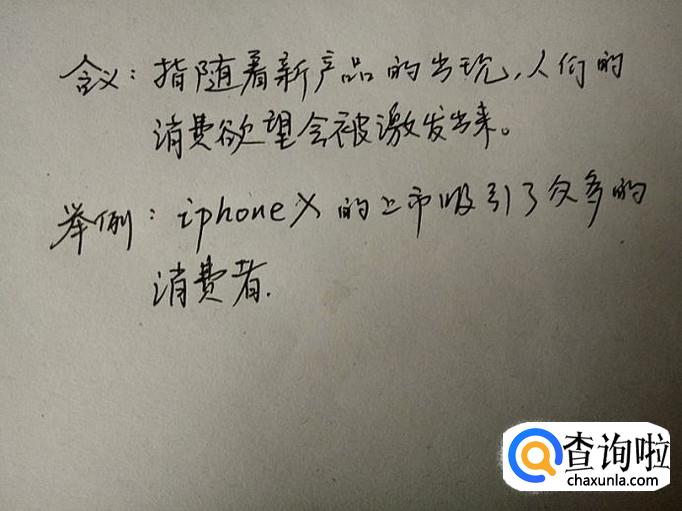 含义：指随着新产品的出现，人们的
消费欲望会被激发出来。
举例：iphoneX的上市吸引了众多的
消费者.
查询啦
chaxunla.com